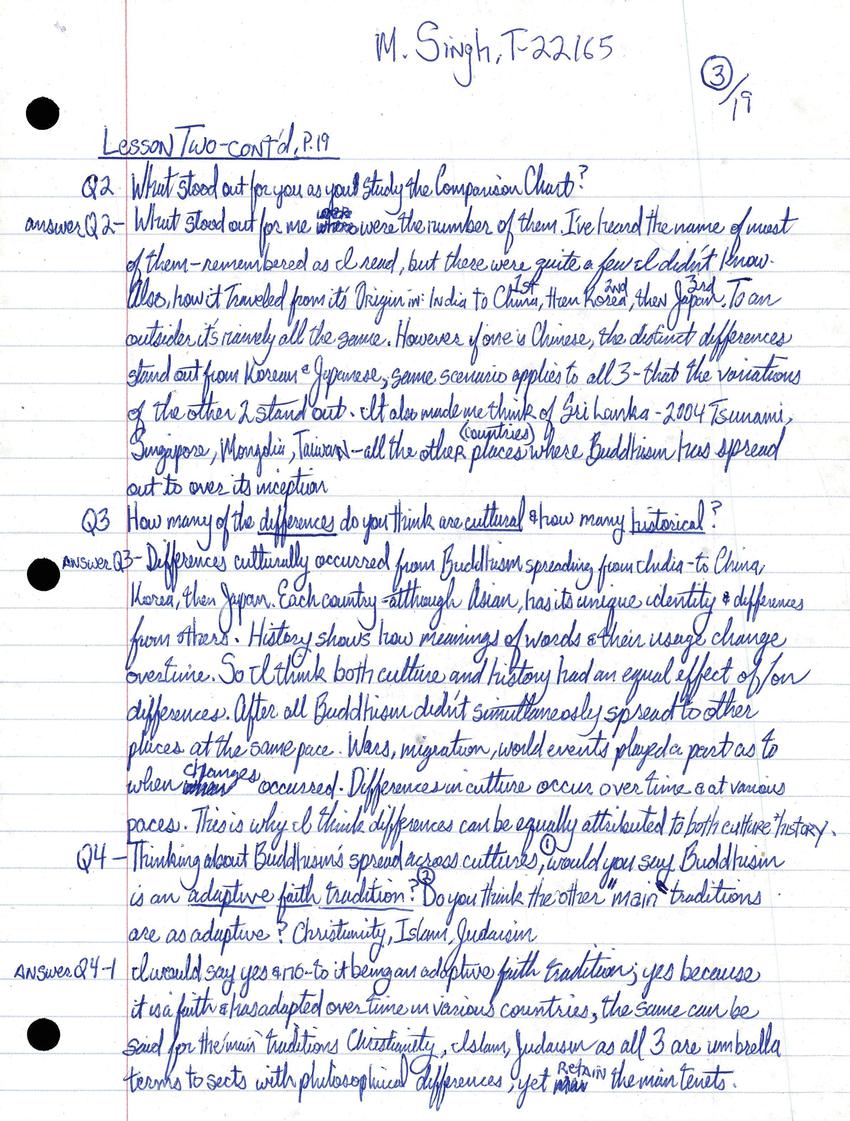 M. Singh, T-22165
3/19
Lesson Two-cont'd, P.19
Q2 What stood out for you as you study the Comparison Chart?
answer Q2- What stood out for me were the number of them. I've heard the name of most
of them-remembered as I read, but there were quite a few I didn't know.
Also, how it Traveled from it's Origin in: India to China, 1st then Korea, 2nd then Japan. 3rd To an
outsider it's mainly all the same. However if one is Chinese, the distinct differences
stand out from Korean & Japanese, same scenario applies to all 3-that the variations
of the other 2 stand out. It also made me think of Sri Lanka-2004 Tsunami,
Singapore, Mongolia, Taiwan-all the other places (countries) where Buddhism has spread
out to over its inception
Q3 How many of the differences do you think are cultural & how many historical?
Answer Q3-Differences culturally occurred from Buddhism spreading from India-to China,
Korea, then Japan. Each country-although Asian, has its unique identity & differences
from others. History shows how meanings of words & their usage change
overtime. So I think both culture and history had an equal effect of/on
differences. After all Buddhism didn't simultaneosly spread to other
places at the same pace. Wars, migration, world events played a part as to
when changes occurred. Differences in culture occur over time & at various
paces. This is why I think differences can be equally attributed to both culture & history.
Q4-Thinking about Buddhism's spread across cultures, ① would you say Buddhism
is an adaptive faith tradition? ② Do you think the other "main" traditions
are as adaptive? Christianity, Islam, Judaism
Answer Q4-1 I would say yes & no-to it being an adaptive faith tradition; yes because
it is a faith & has adapted over time in various countries, the same can be
said for the 'main' traditions Christianity, Islam, Judaism as all 3 are umbrella
terms to sects with philosophical differences, yet RETAIN the main tenets.